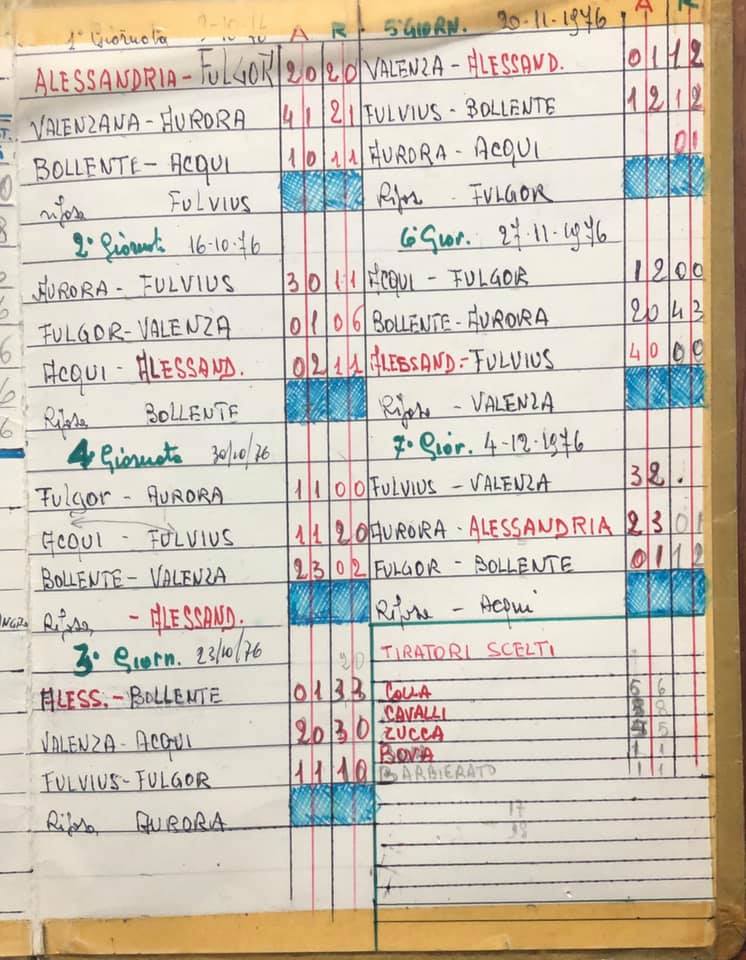 1ª Giornata A R
ALESSANDRIA - FULGOR 2 0 2 0
VALENZANA - AURORA 4 1 2 1
BOLLENTE - ACQUI 1 0 1 1
riposa FULVIUS
2ª Giornata 16-10-76
AURORA - FULVIUS 3 0 1 1
FULGOR - VALENZA 0 1 0 6
ACQUI - ALESSAND. 0 2 1 1
Riposa BOLLENTE
4ª Giornata 30/10/76
Fulgor - AURORA 1 1 0 0
ACQUI - FULVIUS 1 1 2 0
BOLLENTE - VALENZA 2 3 0 2
Riposa - ALESSAND.
3ª Giorn. 23/10/76
20
ALESS. - BOLLENTE 0 1 3
VALENZA - ACQUI 2 0 3 0
FULVIUS - FULGOR 1 1 1 0
Riposa AURORA
5ª GIORN. 20-11-1976 A R
VALENZA - ALESSAND. 0 1 1 2
FULVIUS - BOLLENTE 1 2 1 2
AURORA - ACQUI 0 1
Riposa - FULGOR
6ª Gior. 27-11-1976
ACQUI - FULGOR 1 2 0 0
BOLLENTE - AURORA 2 0 4 3
ALESSAND. - FULVIUS 4 0 0 0
Riposa - VALENZA
7ª Gior. 4-12-1976
FULVIUS - VALENZA 3 2 .
AURORA - ALESSANDRIA 2 3 0 1
FULGOR - BOLLENTE 0 1 1 2
Riposa - Acqui
TIRATORI SCELTI
COLLA 6 6
CAVALLI 8
ZUCCA 4 5
BOVA 1 1
BARBIERATO 1 1
17